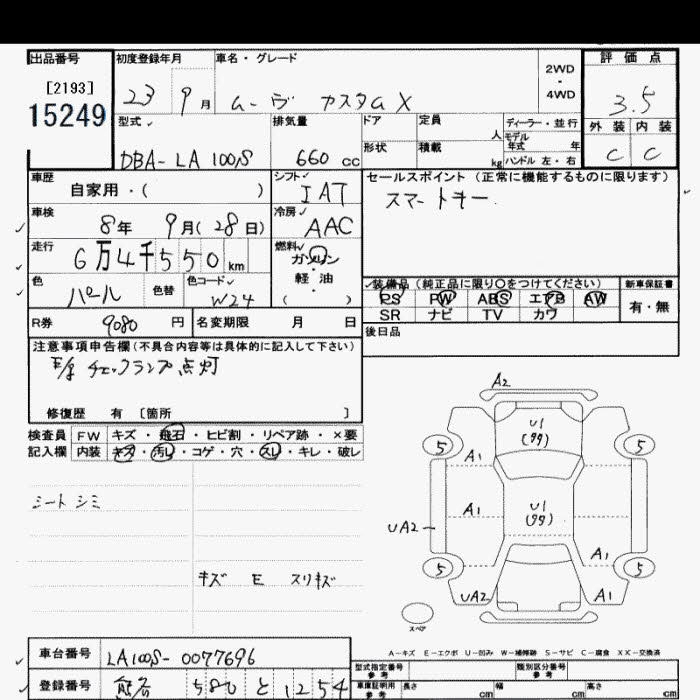 出品番号 初度登録年月 車名・グレード 2WD・4WD 評価点
[2193]
15249 23 9月 ムーヴ カスタム X 3.5
型式 排気量 ドア 定員 人 ディーラー・並行 外装 内装
モデル年式 年
DBA-LA100S 660cc 形状 積載 kg ハンドル 左・右 C C
車歴 シフト セールスポイント (正常に機能するものに限ります)
自家用・( ) IAT スマートキー
車検 冷房
8年 9月(28日) AAC
走行 燃料
6万4千550km ガソリン
軽・油
( )
色 色替 色コード 装備品 (純正品に限り○をつけてください) 新車保証書
パール W24 PS PW ABS エアB AW 有・無
SR ナビ TV カワ
R券 9080円 名変期限 月 日 後日品
注意事項申告欄(不具合内容等は具体的に記入して下さい)
チェックランプ点灯
修復歴 有 [箇所 ]
検査員記入欄 FW キズ・飛石・ヒビ割・リペア跡・×要
内装 キズ・汚レ・コゲ・穴・スレ・キレ・破レ
シート シミ
キズ E スリキズ
A2
U1
(99)
5 5
A1
A1 U1
(99)
UA2
A1
5 5
UA2 A1
スペア
A-キズ E-エクボ U-凹み W-補修跡 S-サビ C-腐食 XX-交換済
車台番号 LA100S-0077696 型式指定番号 参考 類別区分番号 参考
登録番号 熊谷 580 と 1254 車庫証明用 参考 長さ cm 幅 cm 高さ cm